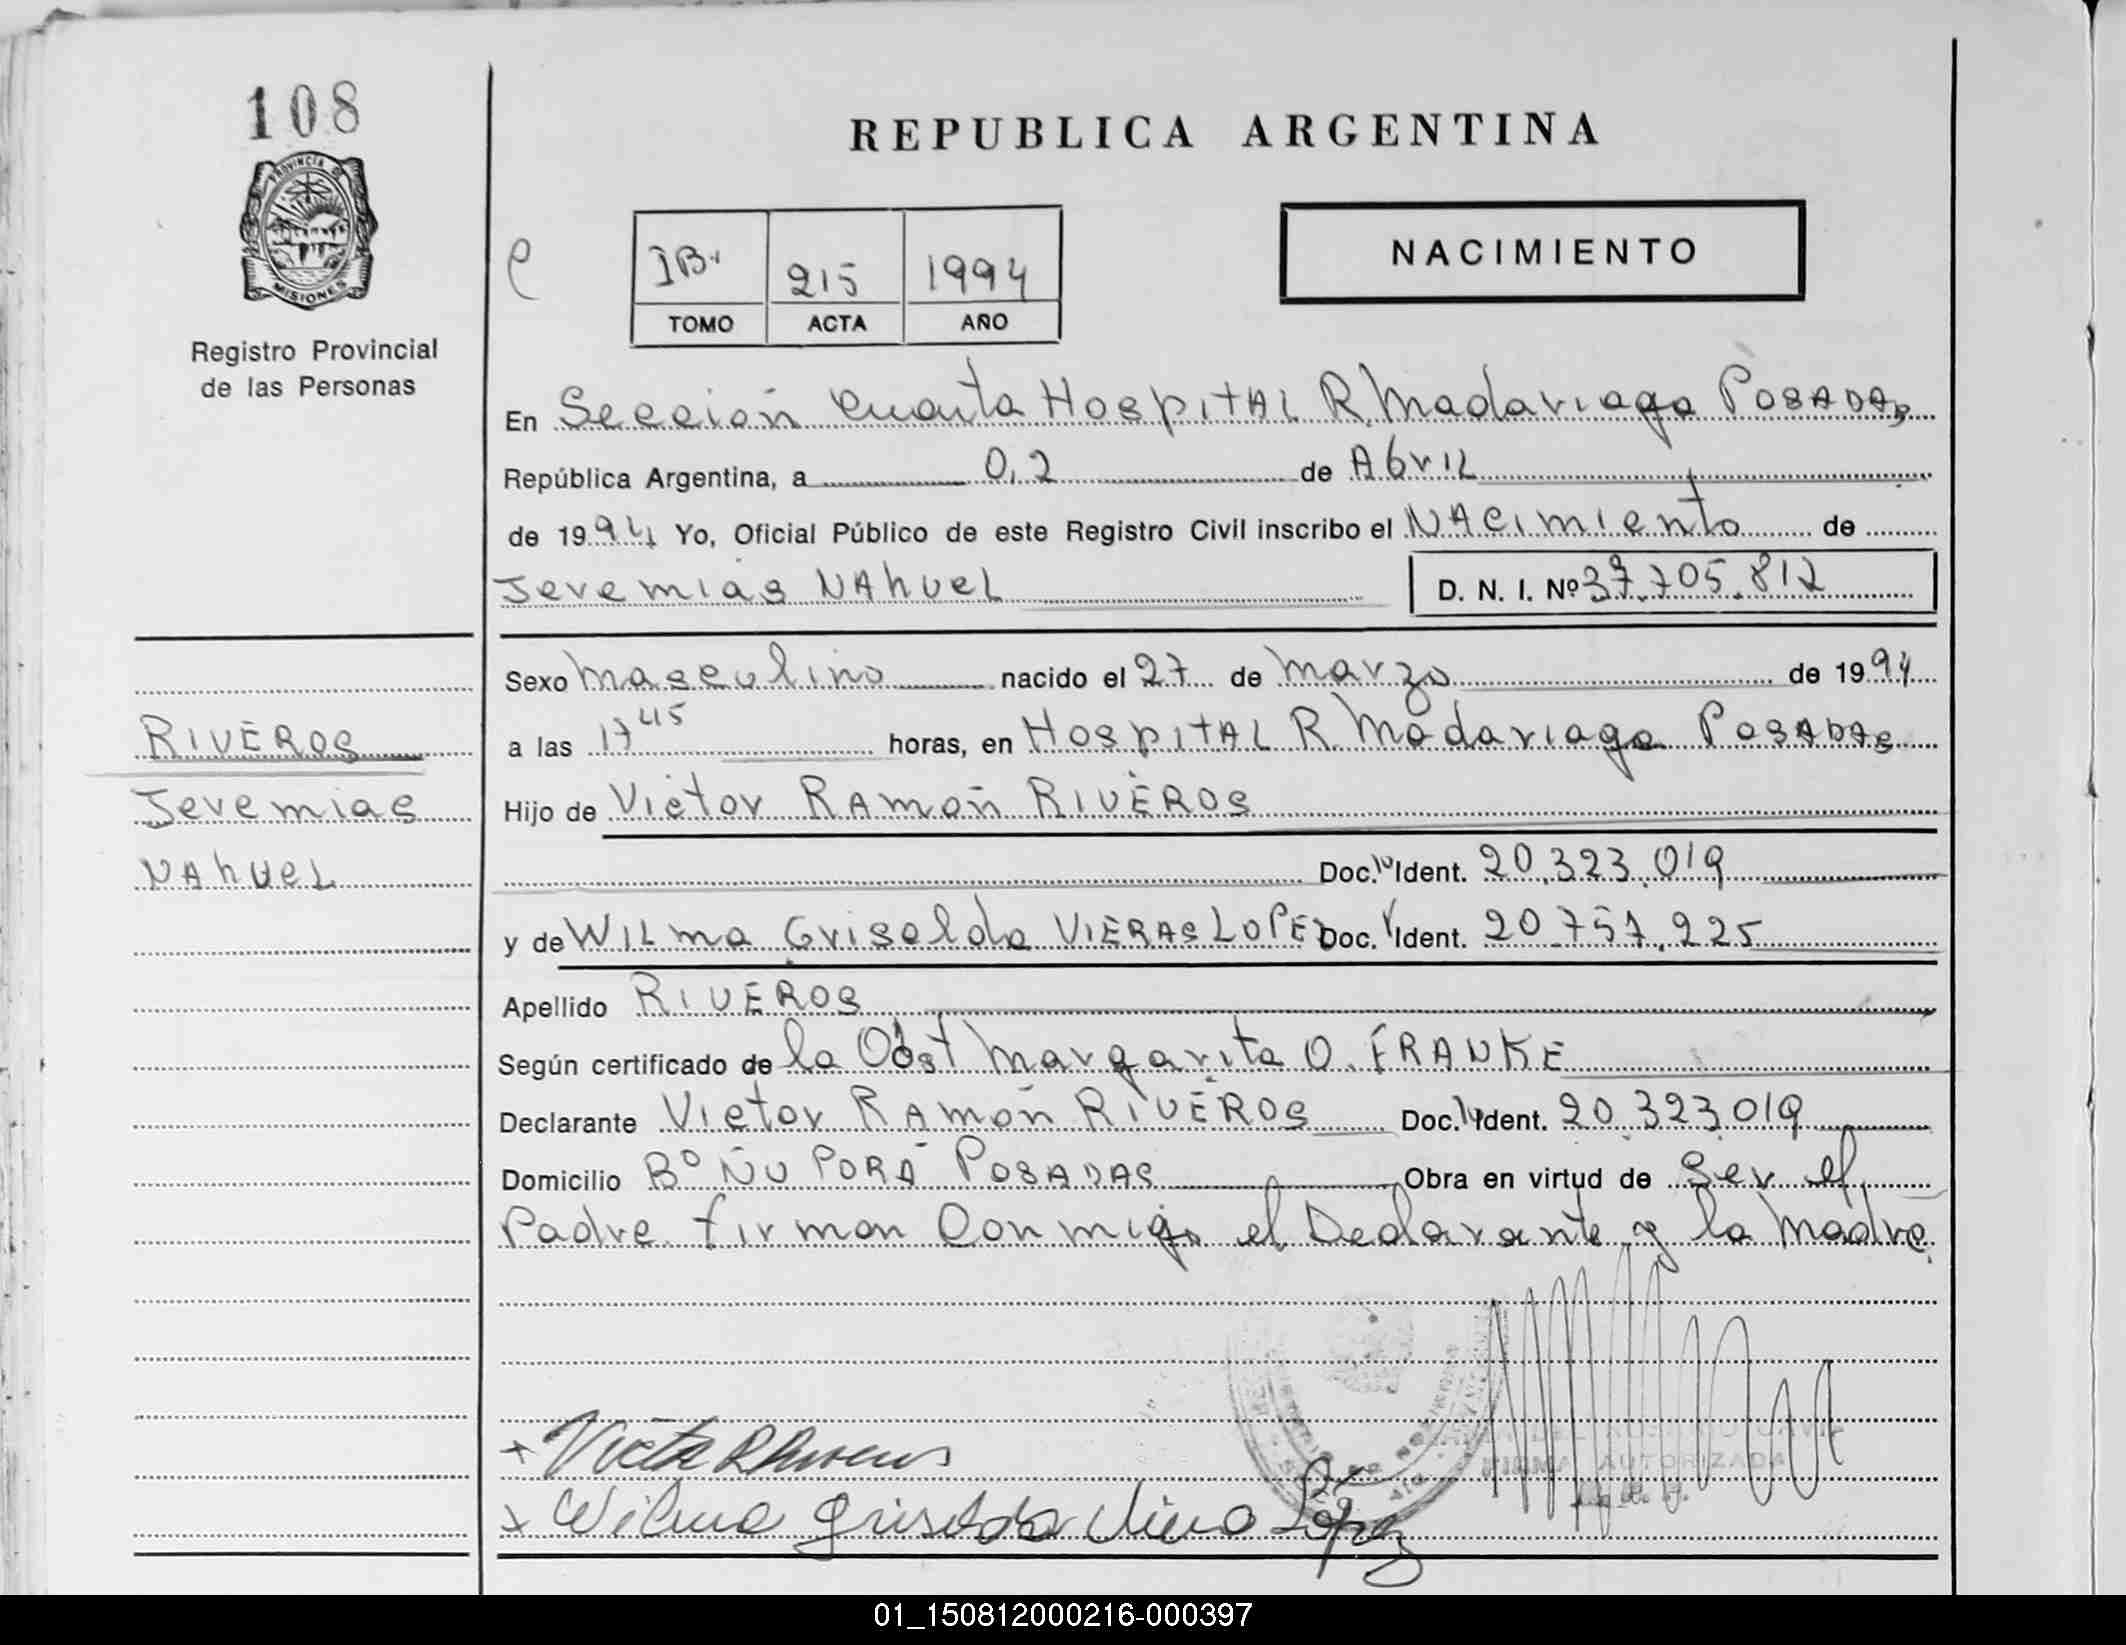 108
PROVINCIA DE
MISIONES
Registro Provincial
de las Personas
REPUBLICA ARGENTINA
IB
215
1994
TOMO
ACTA
AÑO
NACIMIENTO
En Sección Cuarta Hospital R Madariaga Posadas
República Argentina, a 02 de Abril
de 1994 Yo, Oficial Público de este Registro Civil inscribo el Nacimiento de
Jeremias Nahuel D. N. I. Nº 37.705.812
Sexo masculino nacido el 27 de marzo de 1994
RIVEROS
a las 17 45 horas, en Hospital R Madariaga Posadas
Jeremias
Hijo de Victor Ramón RIVEROS
Nahuel
Doc. Ident. 20.323.019
y de Wilma Griselda VIERAS LOPEZ Doc. Ident. 20.757.225
Apellido RIVEROS
Según certificado de la Obst Margarita O. FRANKE
Declarante Victor Ramón RIVEROS Doc. Ident. 20.323.019
Domicilio Bº ÑU PORÁ POSADAS Obra en virtud de Ser el
Padre firman Conmigo el Declarante y la Madre
AUTORIZADA
x Victor R Riveros
x Wilma Griselda Viera López
01_150812000216-000397